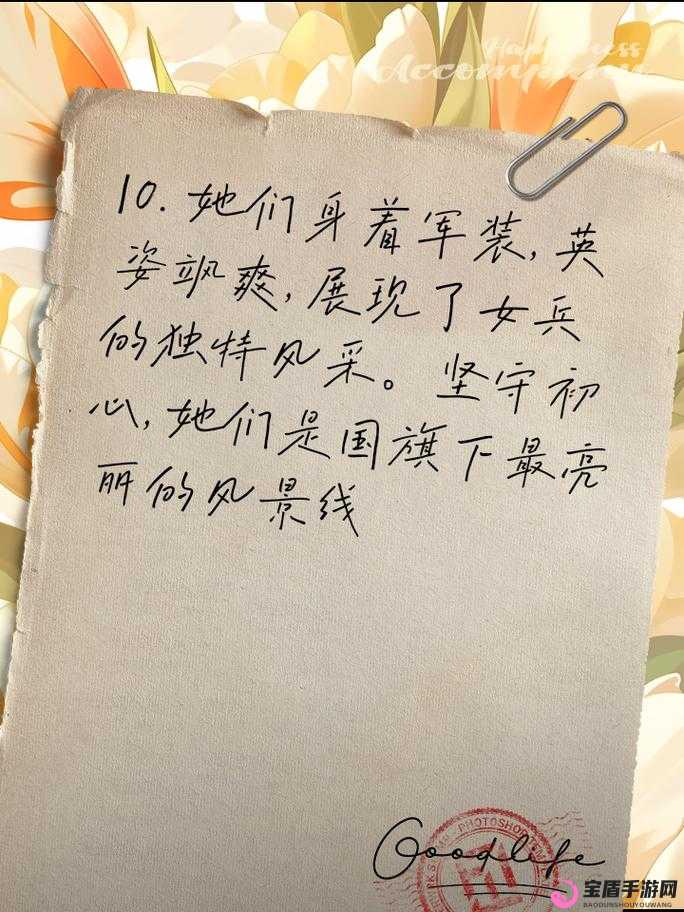 Happiness
10. 她们身着军装，英
姿飒爽，展现了女兵
的独特风采。坚守初
心，她们是国旗下最亮
丽的风景线
PHOTOSHOP
Goodlife
宝盾手游网
BAODUNSHOUYOUWANG